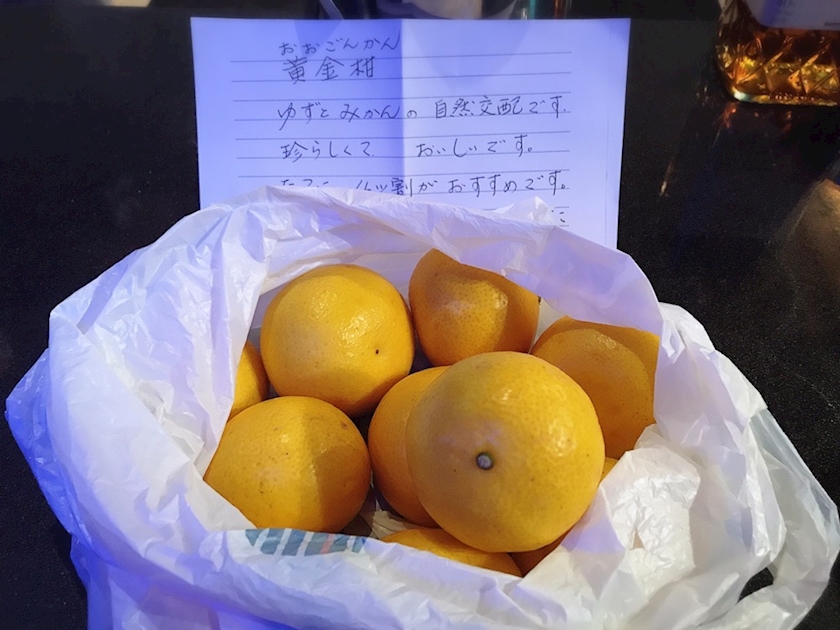 おおごんかん
黄金柑
ゆずとみかんの自然交配です.
珍らしくて おいしいです。
たてに 八ッ割が おすすめです。